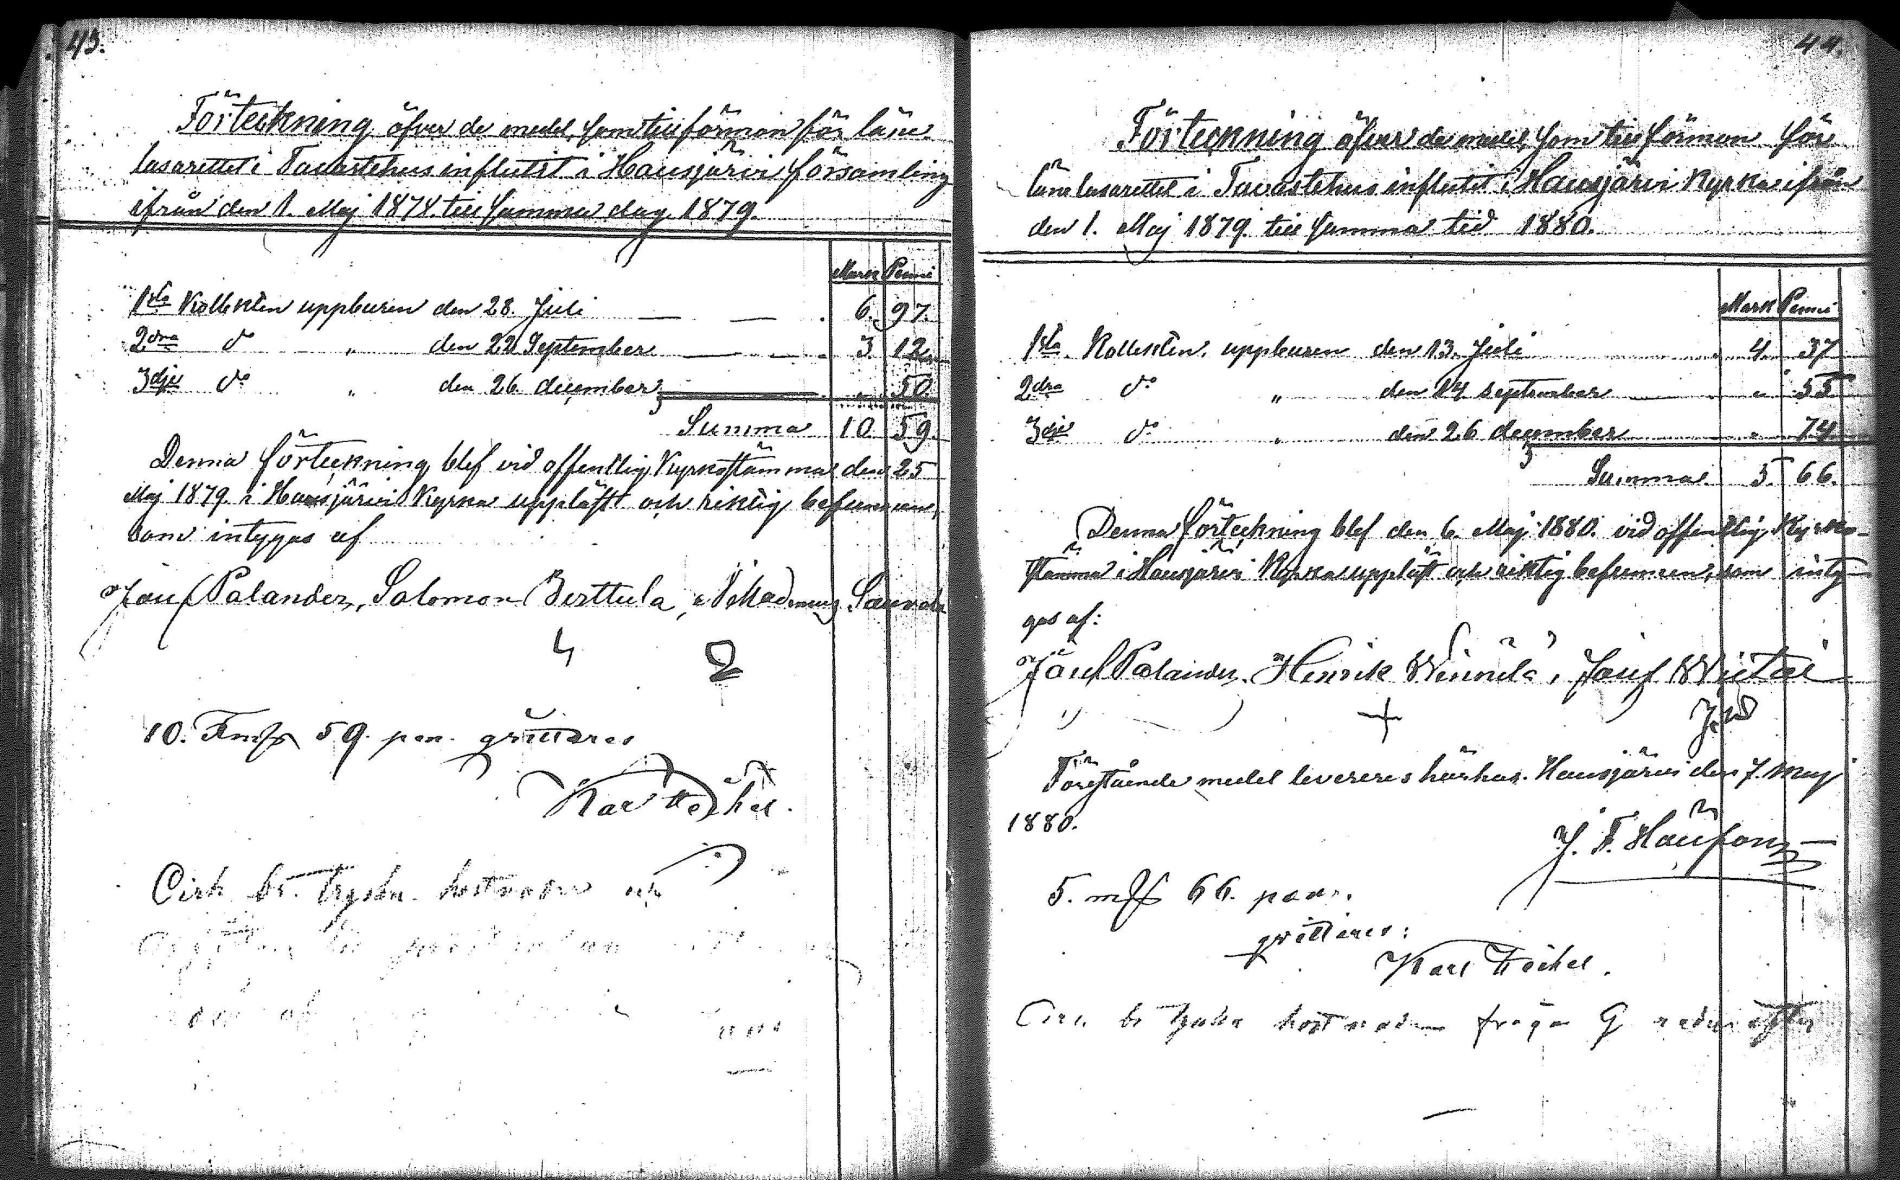 43.
Förteckning öfver de medel, som till förmon för läns
lasarettet i Tavastehus influtit i Hausjärvi församling
ifrån den 1. Maj 1878 till samma dag 1879.
Mark Penni
1sta Kollekten uppburen den 28. Juli 6. 97.
2dra do " den 22 September 3. 12.
3dje do " den 26. december " 50.
Summa 10. 59.
Denna förteckning blef vid offentlig Kyrkostämma den 25
Maj 1879 i Hausjärvi Kyrka uppläst och riktig befunnen,
som intygas af
Josef Palander, Salomon Perttula,
10. Fmk 59. pen. qvitteras
Karl
Cirk br. tryckn. kostnader
44.
Förteckning öfver de medel, som till förmon för
läns lasarettet i Tavastehus influtit i Hausjärvi Kyrka ifrån
den 1. Maj 1879 till samma tid 1880.
Mark Penni
1sta Kollekten uppburen den 13. Juli 4. 37
2dra do " den 14 september " 55
3dje do " den 26 december " 74
Summa 5. 66.
Denna förteckning blef den 6. Maj 1880. vid offentlig Kyrko-
stämma i Hausjärvi Kyrka uppläst och riktig befunnen, som inty-
gas af:
Josef Palander, Henrik Josef
Förestående medel levereres härhos. Hausjärvi den 7. Maj
1880.
J. F.
5. mk 66. penn.
qvitteres:
Karl
kostnaden